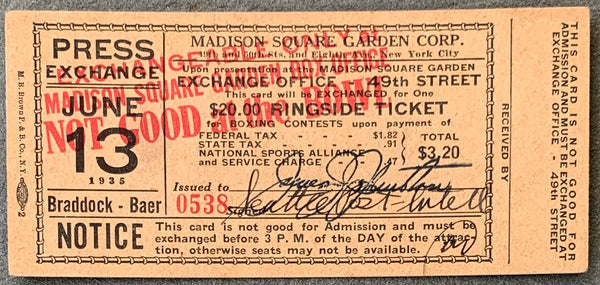 PRESS
EXCHANGE
JUNE
13
1935
Braddock - Baer
M. B. Brown P. & B. Co., N.Y.
2
MADISON SQUARE GARDEN CORP.
49th and 50th Sts. and Eighth Ave., New York City
Upon presentation at the MADISON SQUARE GARDEN
EXCHANGE OFFICE - 49th STREET
This card will be EXCHANGED for One
$20.00 RINGSIDE TICKET
for BOXING CONTESTS upon payment of
FEDERAL TAX - - - $1.82
STATE TAX - - - .91
NATIONAL SPORTS ALLIANCE
and SERVICE CHARGE - .47
TOTAL
$3.20
EXCHANGEABLE ONLY AT
MADISON SQUARE GARDEN
NOT GOOD
Issued to
0538
Seattle Post-Intell
NOTICE
This card is not good for Admission and must be
exchanged before 3 P. M. of the DAY of the attrac-
tion, otherwise seats may not be available.
RECEIVED BY
THIS CARD IS NOT GOOD FOR
ADMISSION AND MUST BE EXCHANGED AT
EXCHANGE OFFICE - 49th STREET